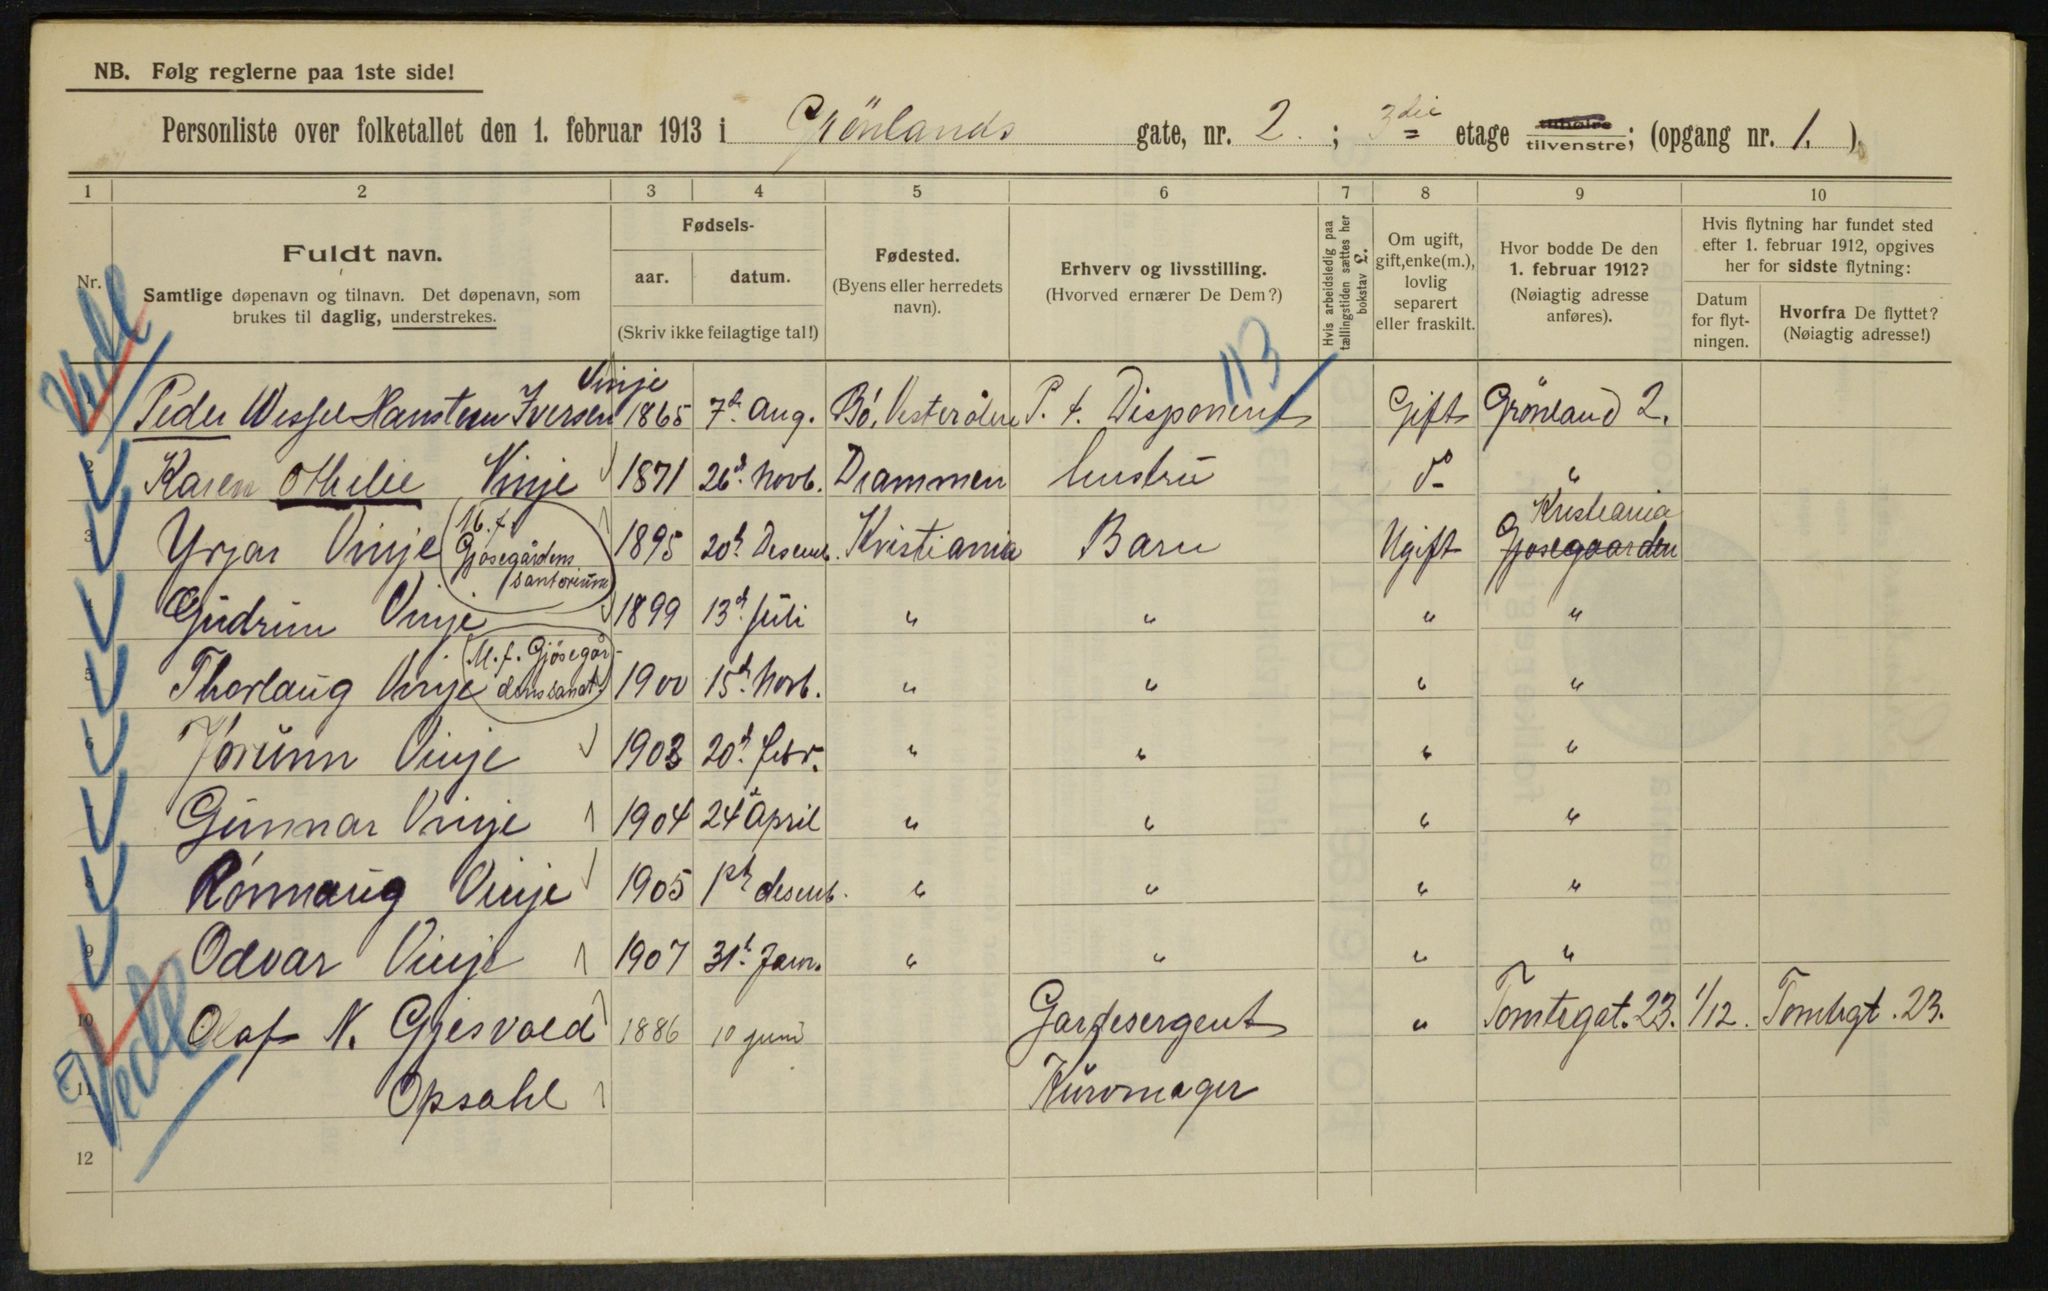 NB. Følg reglerne paa 1ste side!
Personliste over folketallet den 1. februar 1913 i Grönlands gate, nr. 2. ; 3die etage tilhøire tilvenstre; (opgang nr. 1. ).
1 2 3 4 5 6 7 8 9 10
Nr.
Fuldt navn.
Samtlige døpenavn og tilnavn. Det døpenavn, som
brukes til daglig, understrekes.
Fødsels-
aar. datum.
(Skriv ikke feilagtige tal!)
Fødested.
(Byens eller herredets
navn).
Erhverv og livsstilling.
(Hvorved ernærer De Dem?)
Hvis arbeidsledig paa
tællingstiden sættes her
bokstav L.
Om ugift,
gift, enke(m.),
lovlig
separert
eller fraskilt.
Hvor bodde De den
1. februar 1912?
(Nøiagtig adresse
anføres).
Hvis flytning har fundet sted
efter 1. februar 1912, opgives
her for sidste flytning:
Datum
for flyt-
ningen.
Hvorfra De flyttet?
(Nøiagtig adresse!)
Vedl
113
Vinje
Peder Wessel Hansteen Iversen 1865 7d Aug. Bö, Vesterålen P. t. Disponent Gift Grönland 2.
2 Karen Othilie Vinje 1871 26d Novb. Drammen hustru do "
3 Yrjar Vinje (M. f. Gjøsegårdens santorium) 1895 20d Desemb. Kristiania Barn Ugift Kristiania Gjøsegaarden
4 Gudrun Vinje 1899 13d Juli " " " "
5 Thorlaug Vinje (M. f. Gjösegår- dens sanat.) 1900 15d Novb. " " " "
6 Jorunn Vinje 1903 20d febr. " " " "
7 Gunnar Vinje 1904 24d April " " " "
8 Rönnaug Vinje 1905 1st desemb. " " " "
9 Odvar Vinje 1907 31d Jan. " " " "
10 Olaf N. Gjesvold 1886 10 juni Gardesergent " Tomtegat. 23. 1/12. Tomtegt. 23.
11 Opsahl Kurvmager
12
Vedl